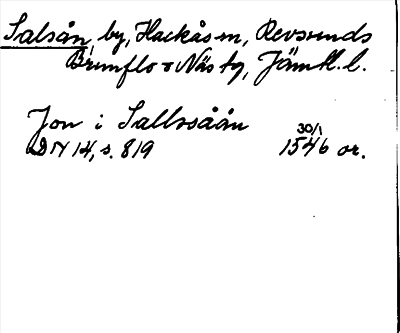 Salsån, by, Hackås sn, Revsunds
Brunflo o Näs tg, Jämtl. l.
Jon i Sallssåån 30/1
DN 14, s. 819 1546 or.